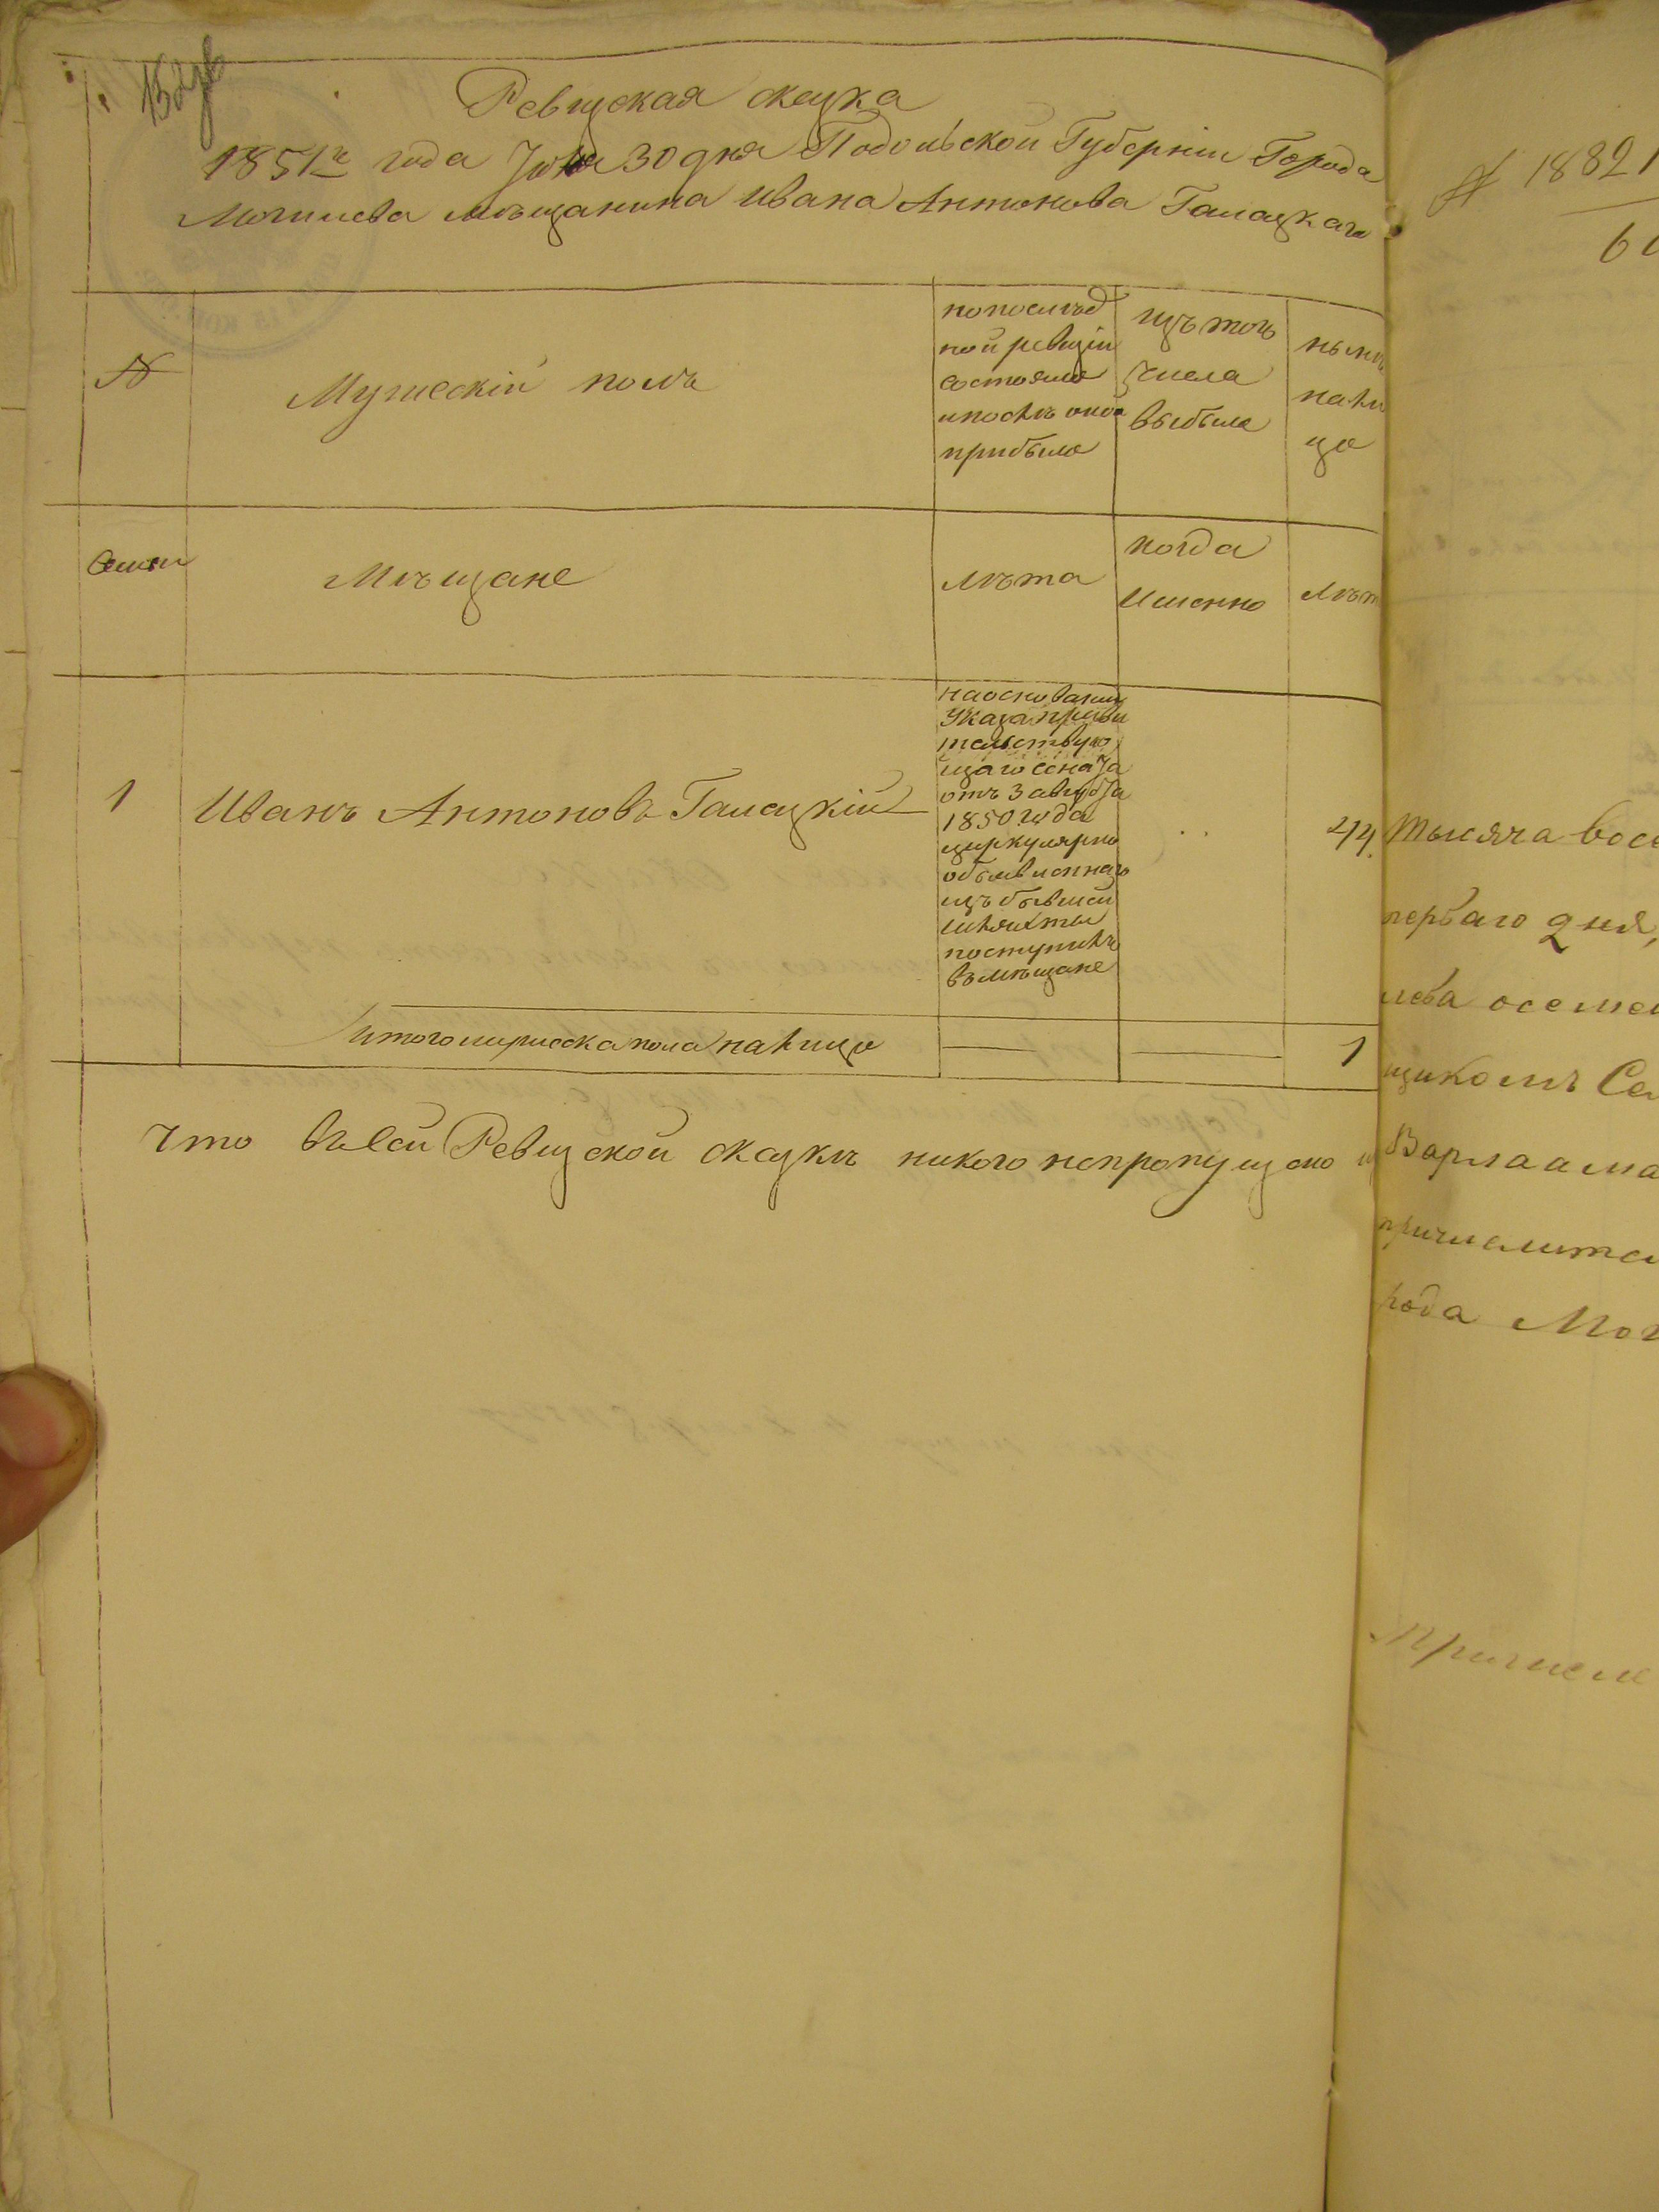 Ревизская сказка
1851го года Июня 30 дня Подольской Губерніи Города
Могилева мѣщанина Ивана Антонова Галацкаго
№
Мужескій полъ
попослѣд
ной ревизіи
состояло
ипослѣ оной
прибыло
изъ того
числа
выбыло
нынѣ
нали
цо
Семьи
Мѣщане
Лѣта
когда
Именно
Лѣт
1
Иванъ Антоновъ Галацкій
наосновании
Указа прави
тельствую
щаго сената
отъ 3 августа
1850 года
циркулярно
объявленнаго
изъ бывшей
шляхты
поступилъ
въ мѣщане
44.
Итого мужеска пола налицо
1
Что въ сей Ревизской сказкѣ никого непропущено и
№ 18821
тысяча восе
перваго дня,
лева осемен
щикомъ Се
Варлаама
рода Мог